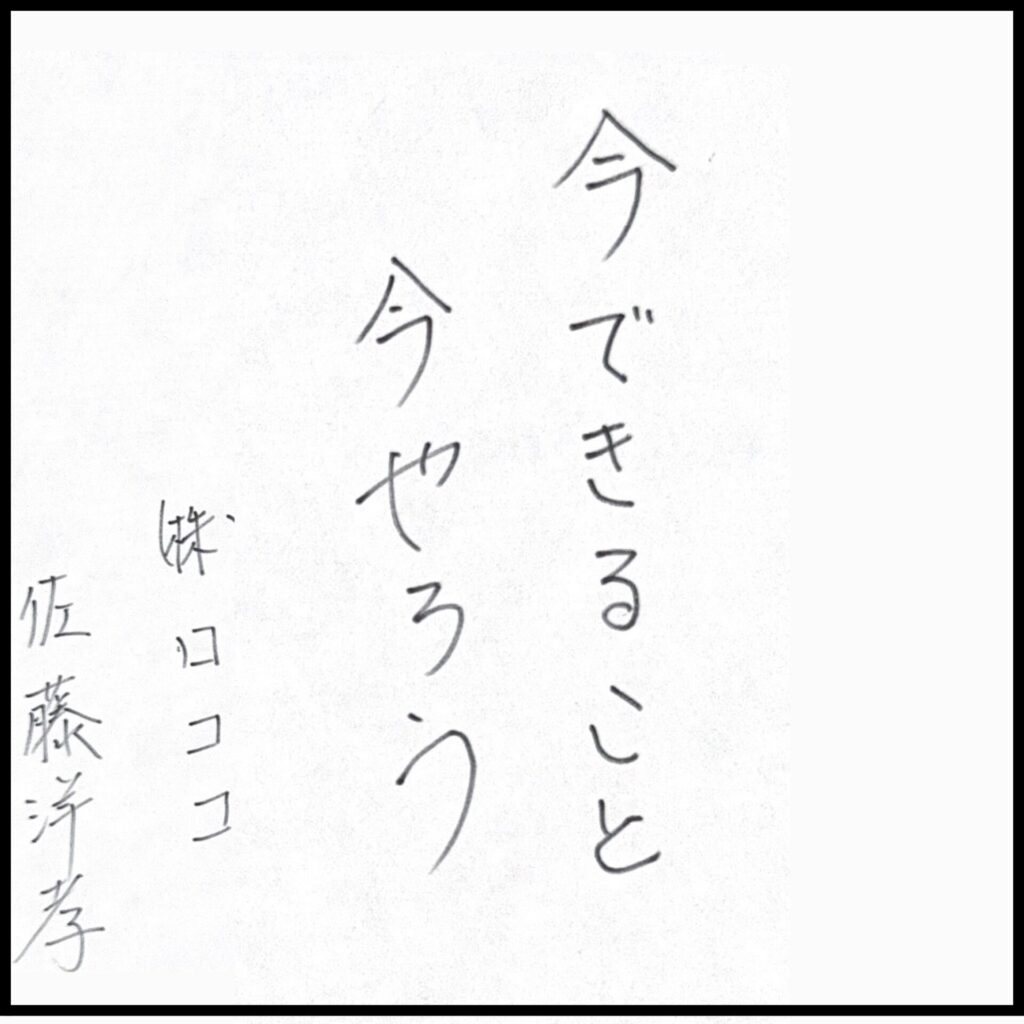 今できること
今やろう
㈱ロココ
佐藤洋孝